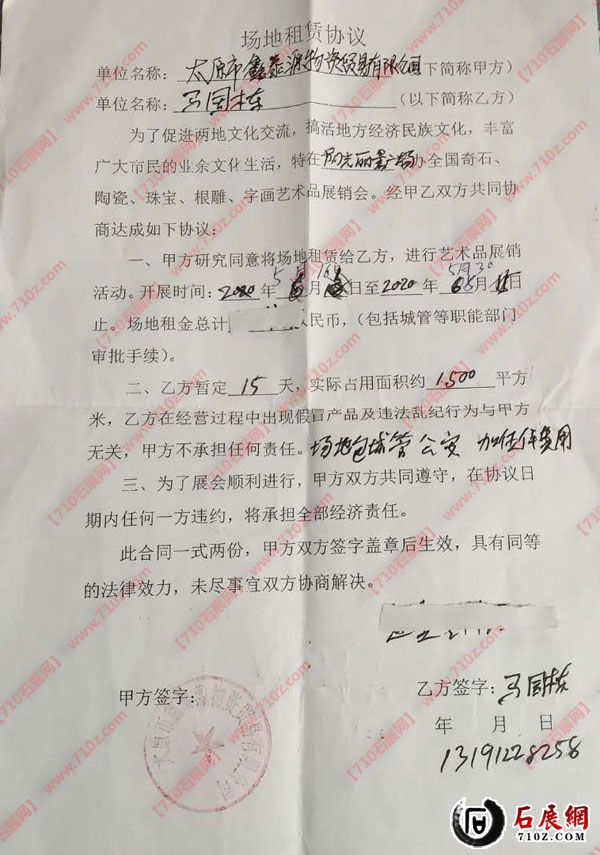 场地租赁协议
单位名称：太原市鑫泰源物资贸易有限公司（以下简称甲方）
单位名称：王国栋（以下简称乙方）
为了促进两地文化交流，搞活地方经济民族文化，丰富
广大市民的业余文化生活，特在阳光丽景广场办全国奇石、
陶瓷、珠宝、根雕、字画艺术品展销会。经甲乙双方共同协
商达成如下协议：
一、甲方研究同意将场地租赁给乙方，进行艺术品展销
活动。开展时间：2020年5月16日至2020年5月30日
止。场地租金总计 人民币，（包括城管等职能部门
审批手续）。
二、乙方暂定15天，实际占用面积约1500平方
米，乙方在经营过程中出现假冒产品及违法乱纪行为与甲方
无关，甲方不承担任何责任。场地包城管 公安 任何费用
三、为了展会顺利进行，甲方双方共同遵守，在协议日
期内任何一方违约，将承担全部经济责任。
此合同一式两份，甲方双方签字盖章后生效，具有同等
的法律效力，未尽事宜双方协商解决。
甲方签字：
乙方签字：王国栋
年 月 日
13191228258
【710石展网】www.710z.com
石展網
710Z.COM